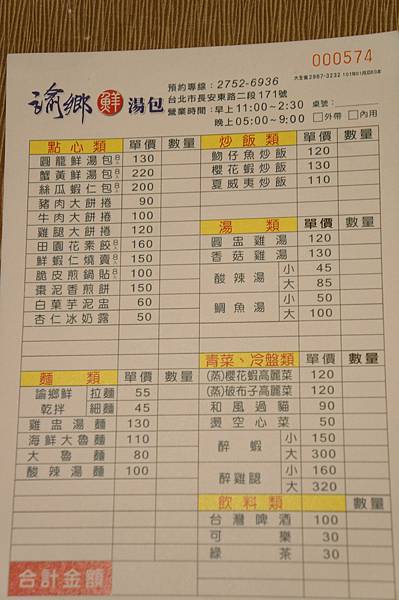 000574
諭鄉 鮮 湯包
預約專線：2752-6936
台北市長安東路二段171號
營業時間：早上11:00~2:30
晚上05:00~9:00
桌號：
□外帶 □內用
點心類 單價 數量
圓籠鮮湯包 130
蟹黃鮮湯包 220
絲瓜蝦仁包 200
豬肉大餅捲 90
牛肉大餅捲 100
雞腿大餅捲 120
田園花素餃 160
鮮蝦仁燒賣 150
脆皮煎鍋貼 100
棗泥香煎餅 150
白菓芋泥盅 60
杏仁冰奶露 50
炒飯類 單價 數量
魩仔魚炒飯 120
櫻花蝦炒飯 130
夏威夷炒飯 110
湯類 單價 數量
圓盅雞湯 120
香菇雞湯 130
酸辣湯 小 45
大 85
鯛魚湯 小 50
大 100
麵類 單價 數量
諭鄉鮮 拉麵 55
乾拌 細麵 45
雞盅湯麵 130
海鮮大魯麵 110
大魯麵 80
酸辣湯麵 100
青菜、冷盤類 單價 數量
(蒸)櫻花蝦高麗菜 120
(蒸)破布子高麗菜 120
和風過貓 90
燙空心菜 50
醉蝦 小 150
大 300
醉雞腿 小 160
大 320
飲料類 數量
台灣啤酒 100
可樂 30
綠茶 30
合計金額